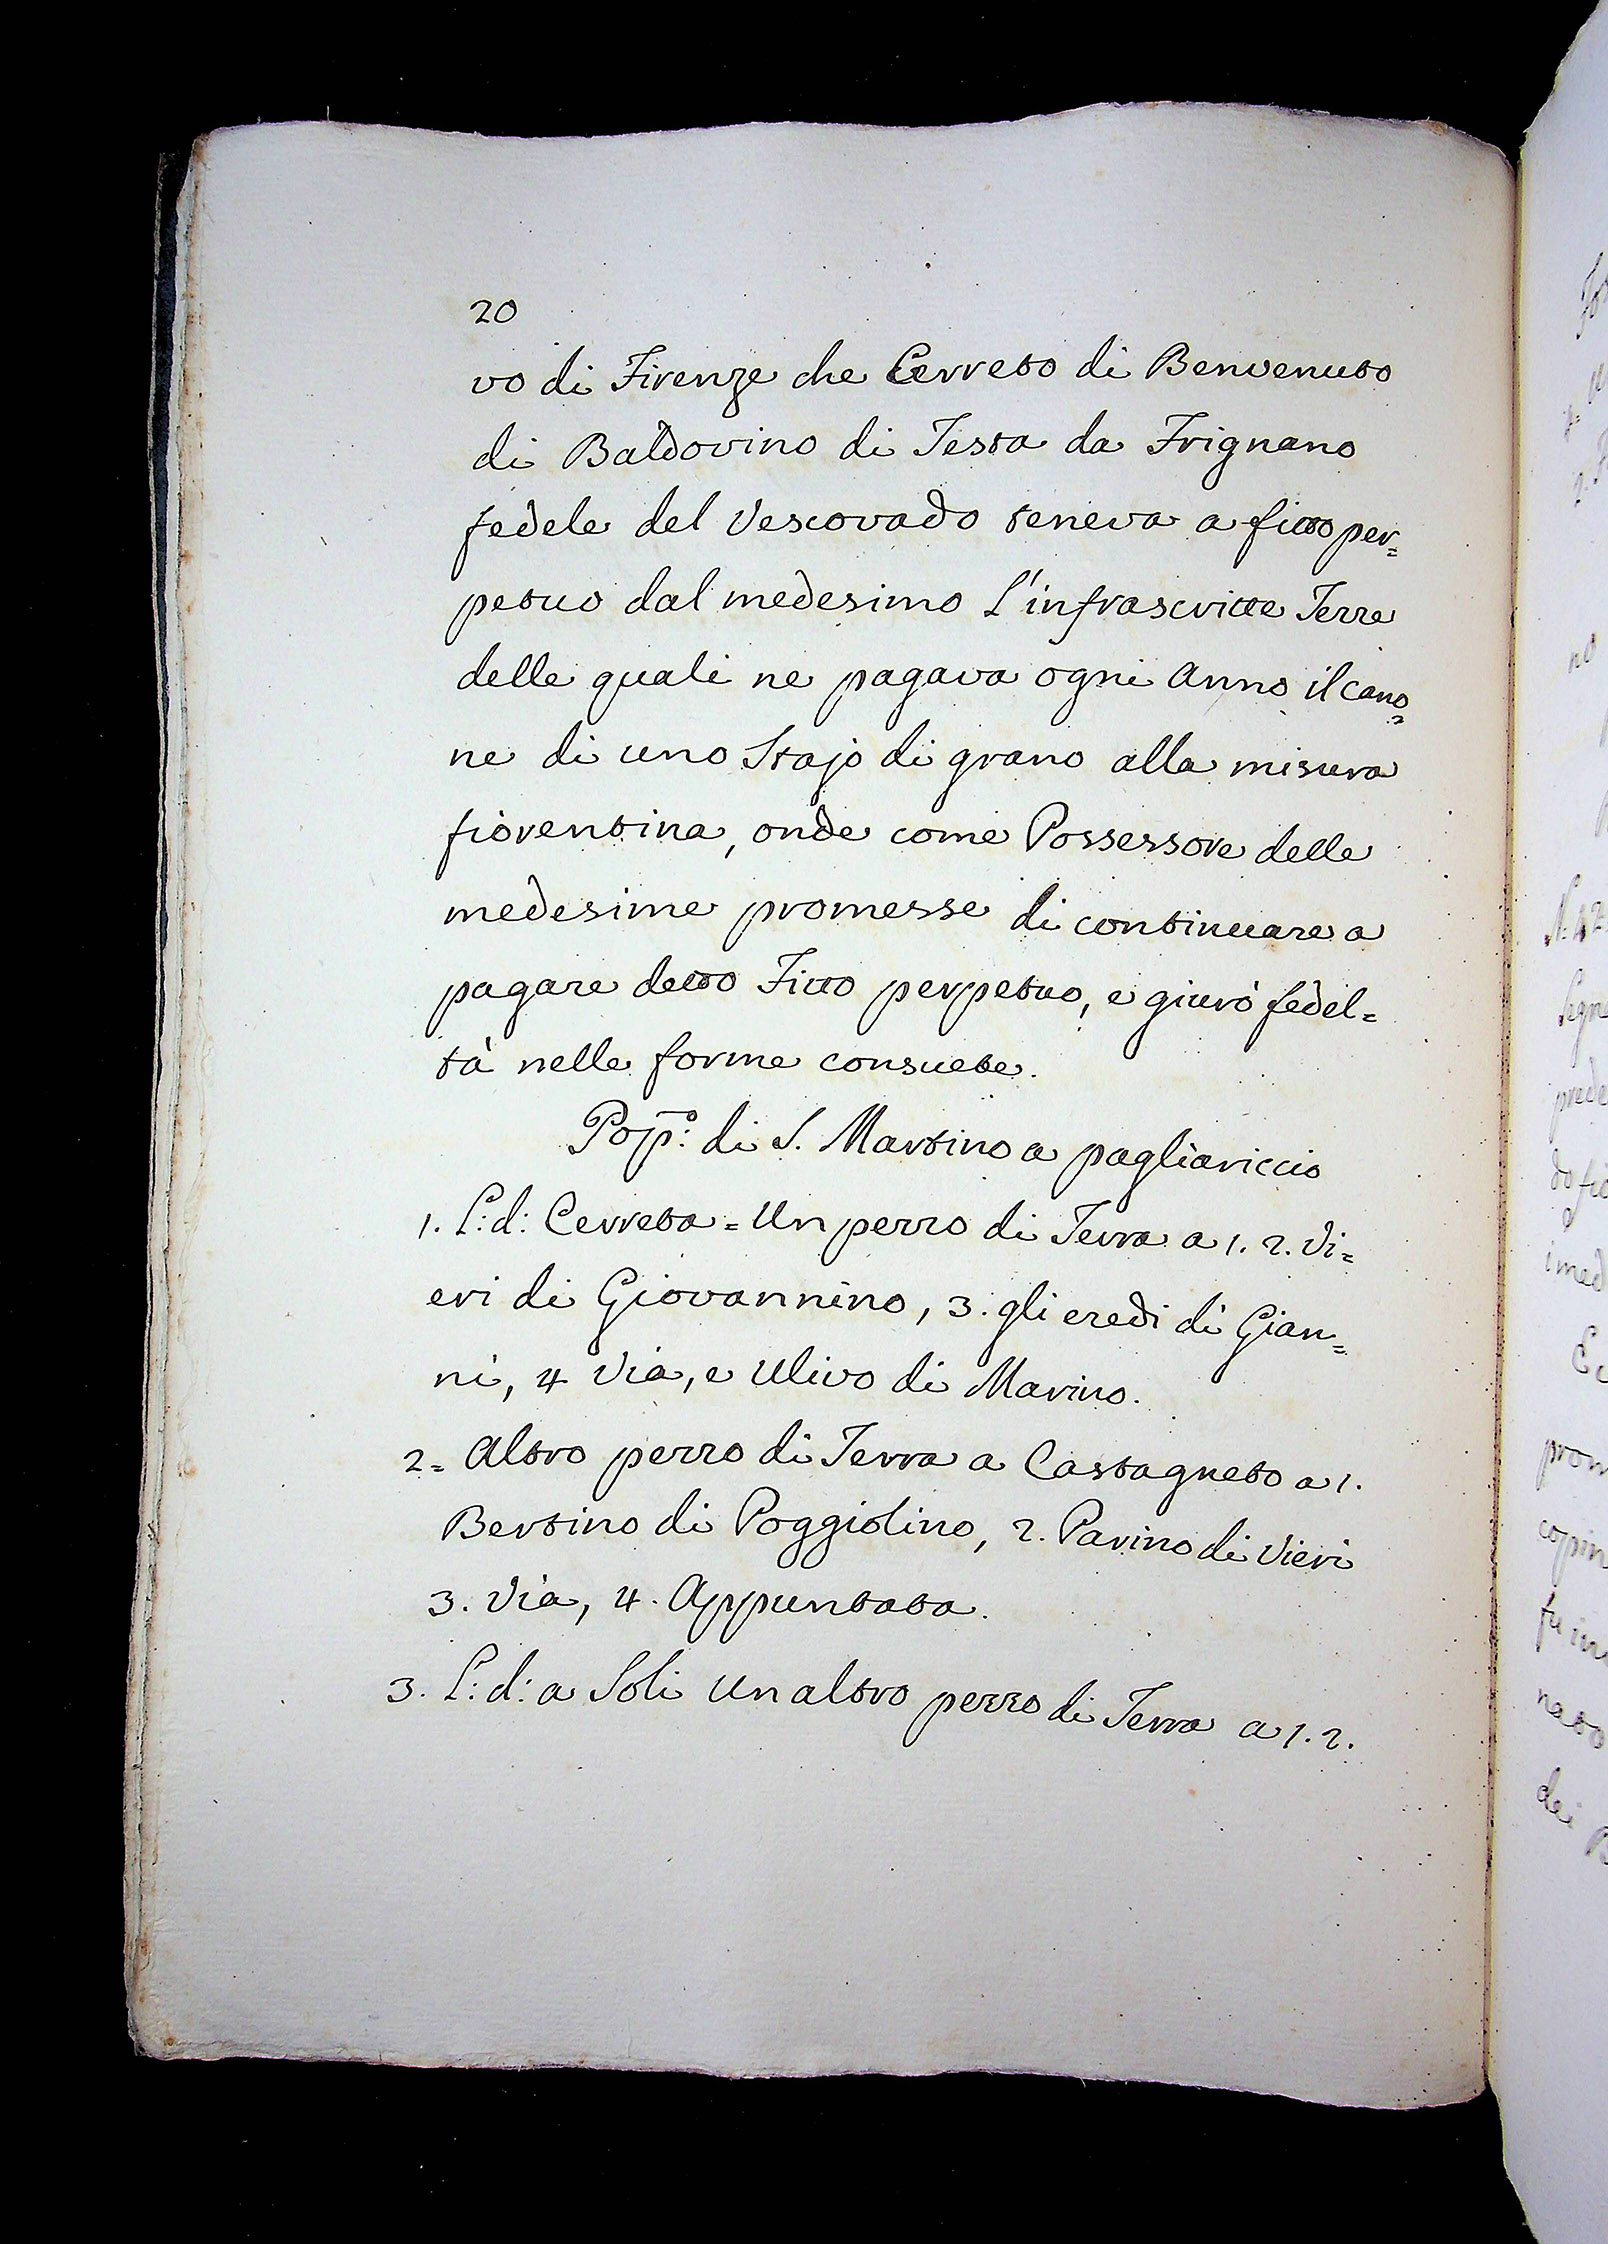 20
vo di Firenze che Cerreto di Benvenuto
di Baldovino di Testa da Frignano
fedele del Vescovado teneva a fitto per=
petuo dal medesimo l'infrascritte Terre
delle quali ne pagava ogni Anno il cano=
ne di uno Stajo di grano alla misura
fiorentina, onde come Possessore delle
medesime promesse di continuare a
pagare detto Fitto perpetuo, e giurò fedel=
tà nelle forme consuete.
Pop.º di S. Martino a pagliariccio
1. L: d: Cerreta = Un pezzo di Terra a 1. 2. Vi=
eri di Giovannino, 3. gli eredi di Gian=
ni, 4 Via, e Ulivo di Marino.
2= Altro pezzo di Terra a Castagneto a 1.
Bertino di Poggiolino, 2. Parino di Vieri
3. Via, 4. Appuntata.
3. L: d: a Soli Un altro pezzo di Terra a 1. 2.